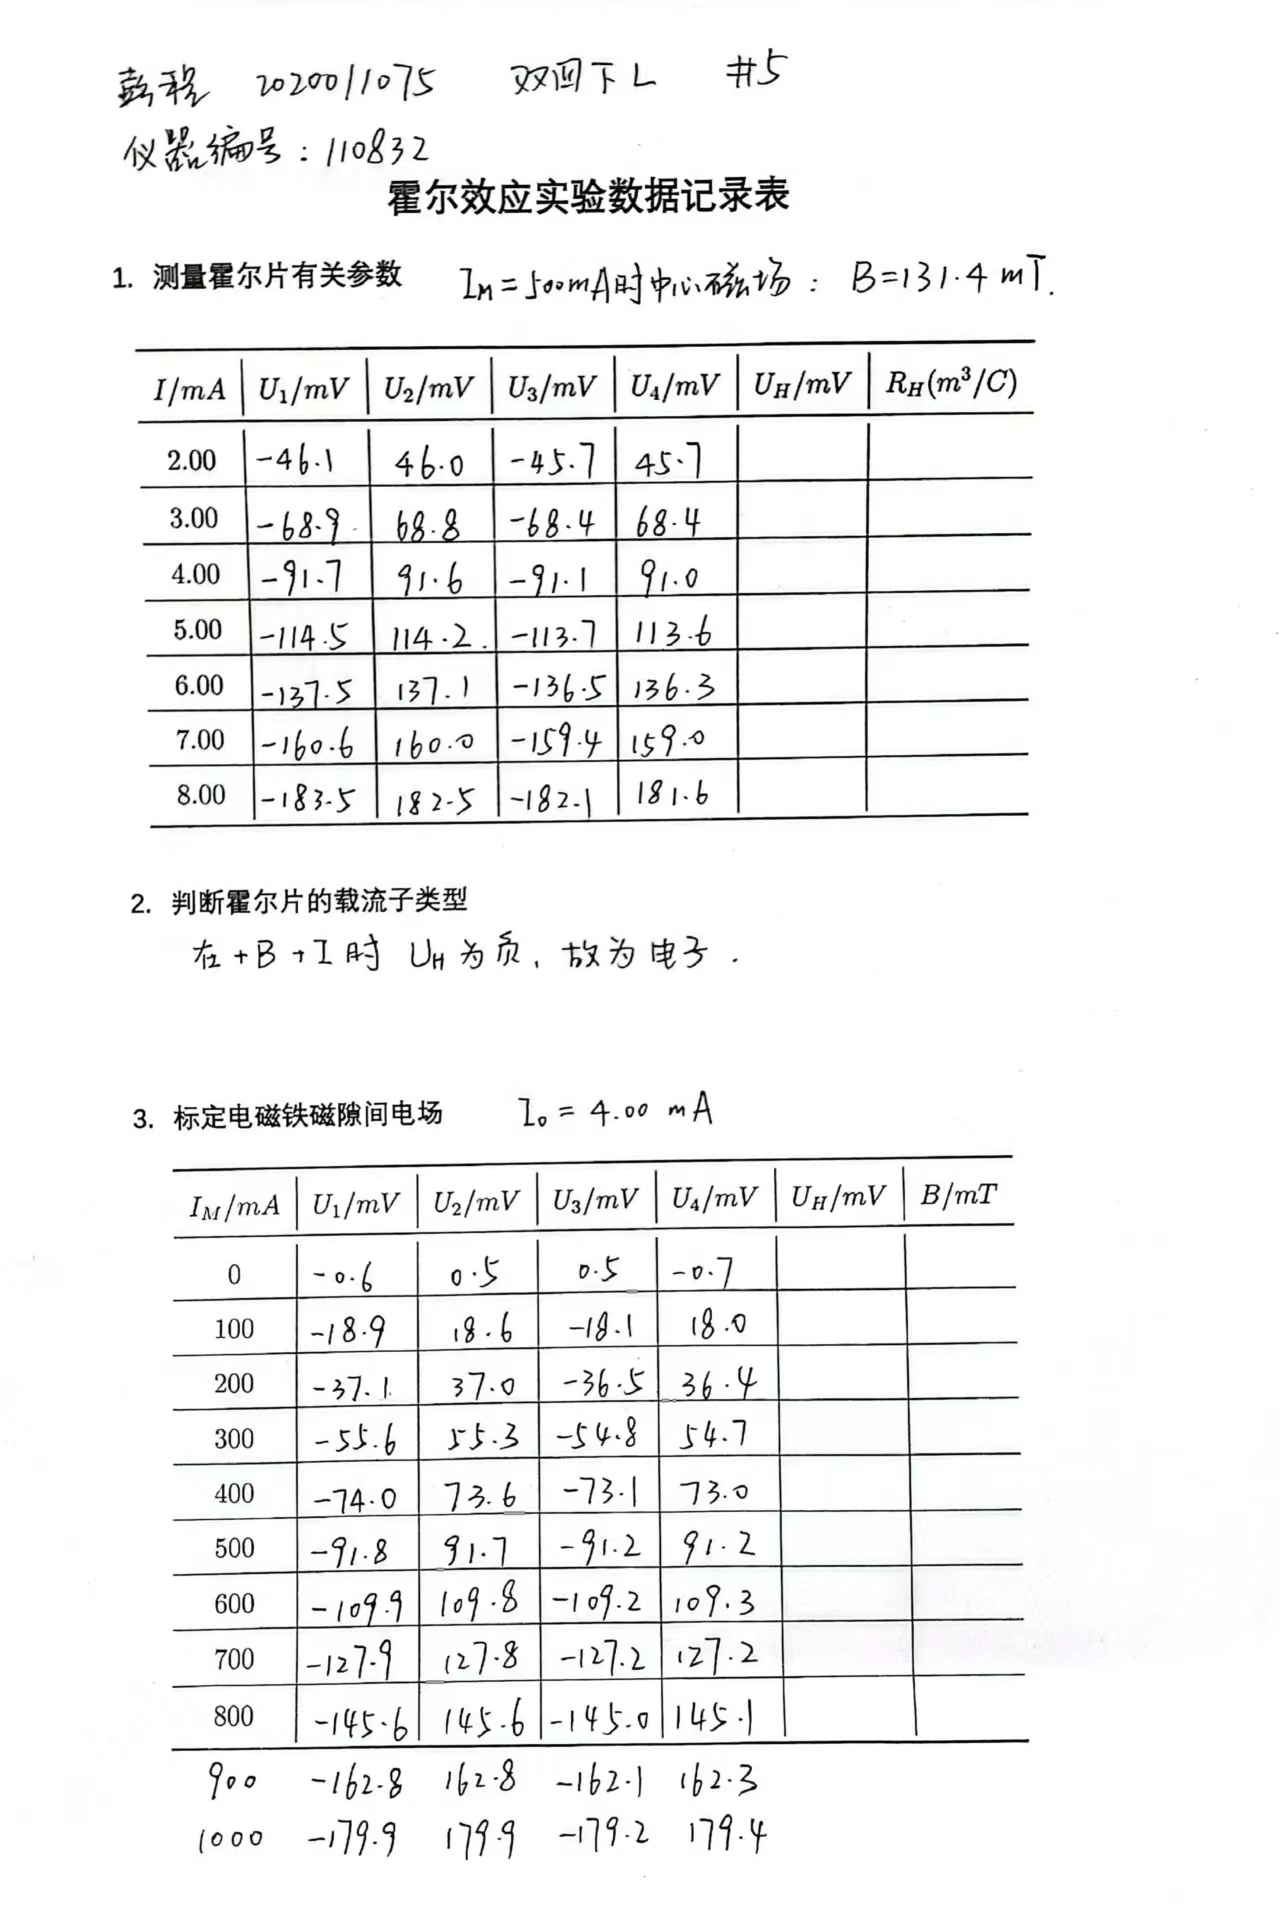 彭程 2020011075 双回下L #5
仪器编号：110832
霍尔效应实验数据记录表
1. 测量霍尔片有关参数 I_M = 500mA时中心磁场： B=131.4 mT.
I/mA U_1/mV U_2/mV U_3/mV U_4/mV U_H/mV R_H(m^3/C)
2.00 -46.1 46.0 -45.7 45.7
3.00 -68.9 68.8 -68.4 68.4
4.00 -91.7 91.6 -91.1 91.0
5.00 -114.5 114.2 -113.7 113.6
6.00 -137.5 137.1 -136.5 136.3
7.00 -160.6 160.0 -159.4 159.0
8.00 -183.5 182.5 -182.1 181.6
2. 判断霍尔片的载流子类型
在 +B +I 时 U_H 为负，故为电子.
3. 标定电磁铁磁隙间电场 I_0 = 4.00 mA
I_M/mA U_1/mV U_2/mV U_3/mV U_4/mV U_H/mV B/mT
0 -0.6 0.5 0.5 -0.7
100 -18.9 18.6 -18.1 18.0
200 -37.1 37.0 -36.5 36.4
300 -55.6 55.3 -54.8 54.7
400 -74.0 73.6 -73.1 73.0
500 -91.8 91.7 -91.2 91.2
600 -109.9 109.8 -109.2 109.3
700 -127.9 127.8 -127.2 127.2
800 -145.6 145.6 -145.0 145.1
900 -162.8 162.8 -162.1 162.3
1000 -179.9 179.9 -179.2 179.4